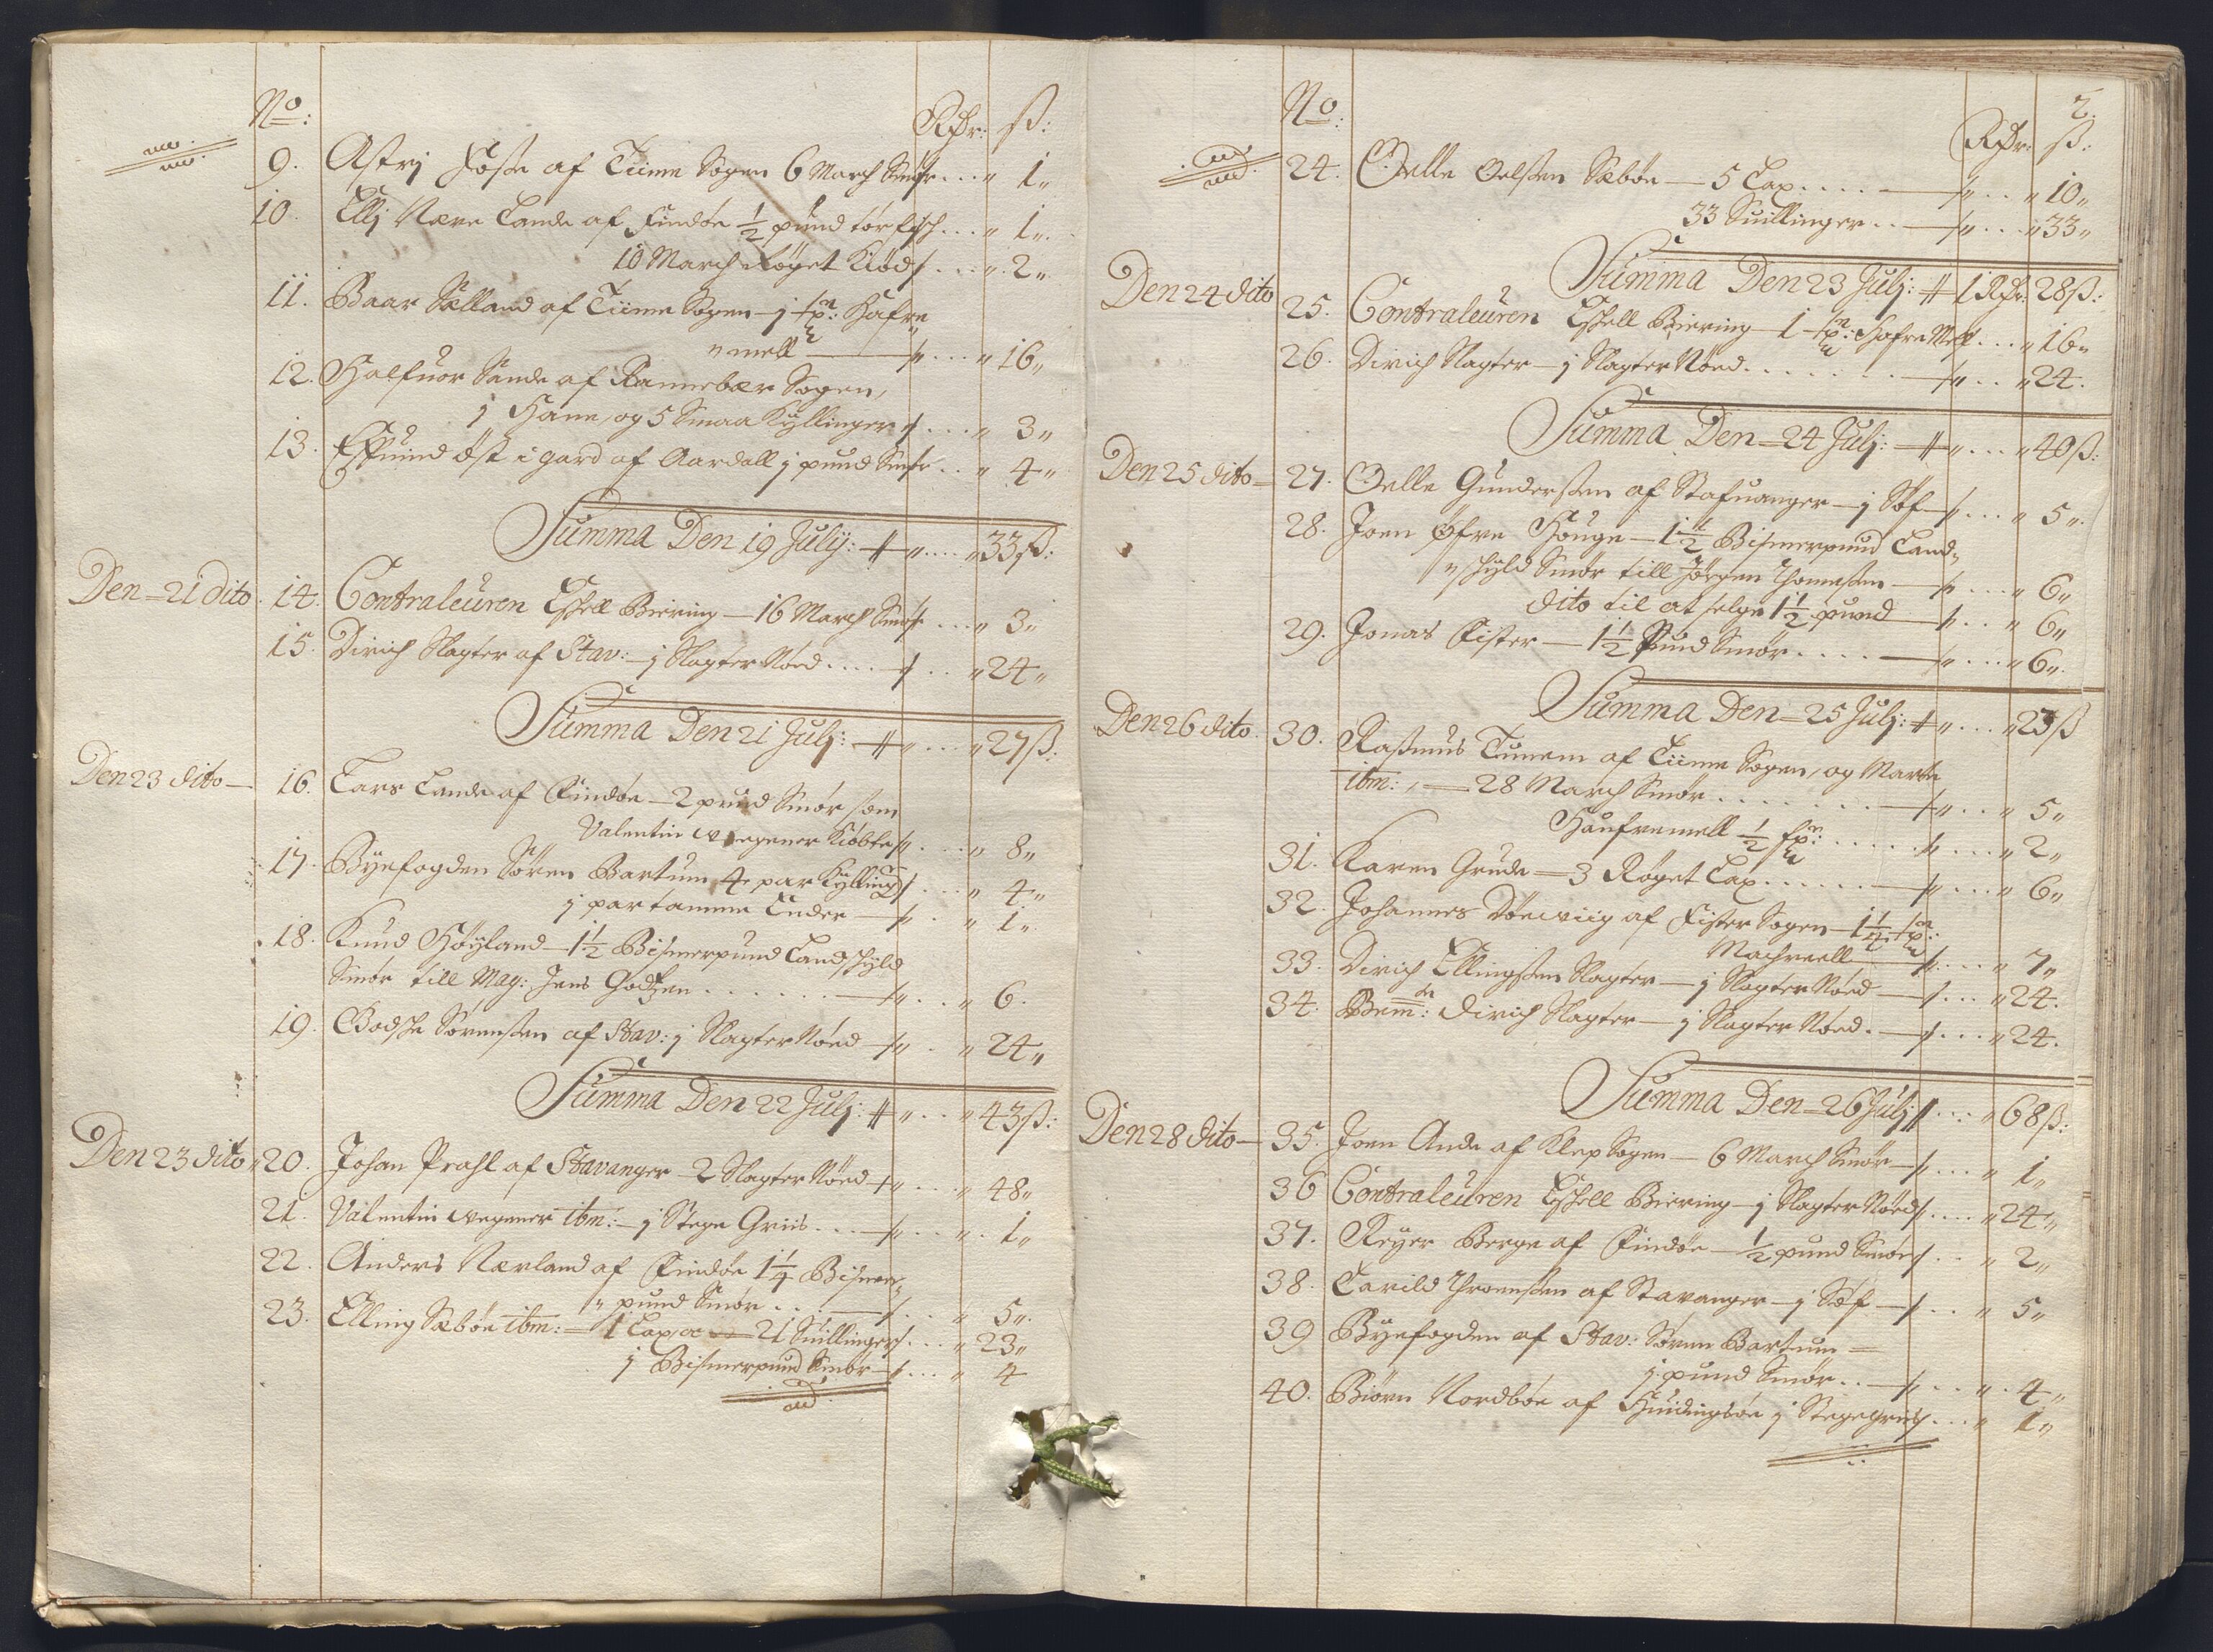 No:
Rdr: ß:
9. Astrj Fosse af Tiime Sogen 6 March Smør ... " 1"
10. Ellj Nære Lande af Findøe ½ pund tør fisch ... " 1"
10 March Røget Kiød ... " 2"
11. Baar Sælland af Tiime Sogen j Hafre
" mell — " ... " 16"
12. Halfuor Sande af Rannebær Sogen,
j Hane, og 5 Smaa Kyllinger ... " 3"
13. Effuind Øst i gard af Aardall j pund Smør .. " 4"
Summa Den 19 July: " .... " 33 ß:
Den 21 dito. 14. Contraleuren Eskell Biering — 16 March Smør ... " 3"
15. Dirich Slagter af Stav: — j Slagter Nøed .... " 24"
Summa Den 21 Julj: " ... " 27 ß:
Den 23 dito — 16. Lars Lande af Findøe — 2 pund Smør som
Valentin Wegener Kiøbte ... " 8"
17. Byefogden Søren Bartum 4 par Kylling ... " 4"
j par tamme Ender — " . " 1"
18. Knud Høyland — 1½ Bismerpund Landschyld
Smør till May: Jens Godtzen ...... " .. " 6.
19. Godske Sørensen af Stav: j Slagter Nøed " . " 24"
Summa Den 22 Julj: " .. " 43 ß:
Den 23 dito " 20. Johan Prahl af Stavanger — 2 Slagter Nøed " ... " 48"
21. Valentin Wegener ibm: — j Stege Griis ... " .. " 1"
22. Anders Nærland af Findøe 1¼ Bismer
" pund Smør ... " 5"
23. Elling Sæbøe ibm: = 1 Lax oc — 21 Snillinger ... " 23"
j Bismerpund Smør ... " 4
2.
No:
Rdr: ß:
24. Oelle Oelssen Sæbøe — 5 Lax ..... " .. " 10"
33 Snillinger .. " ... " 33"
Summa Den 23 Julj: 1 Rdr: 28 ß:
Den 24 dito 25. Contraleuren Eskell Biering — 1 Hafre Mell ... " 16"
26. Dirich Slagter — j Slagter Nøed ....... " .. " 24.
Summa Den 24 Julj: " ... " 40 ß:
Den 25 dito = 27. Oelle Gunderssen af Stafuanger — j Søf ... " 5"
28. Joen Øfre Houge — 1½ Bismerpund Land=
" schyld Smør till Jørgen Thomessen — ... " 6"
dito til at selge 1½ pund ... " 6"
29. Jonas Fister — 1½ Pund Smør .... " ... " 6"
Summa Den 25 Julj: " ... " 23 ß
Den 26 dito. 30. Rasmus Tunem af Tiime Sogen, og Marte
ibm: , — 28 March Smør ....... " ... " 5"
Haufremell ½ ..... " ... " 2"
31. Karen Grude = 3 Røget Lax ...... " ... " 6"
32. Johannes Døewiig af Fister Sogen — 1¼
Machreell " ... " 7"
33. Dirich Ellingssen Slagter — j Slagter Nøed ... " 24.
34. Bem:te Dirich Slagter — j Slagter Nøed. ... " 24.
Summa Den 26 Julj ... " 68 ß:
Den 28 dito — 35. Joen Ande af Klep Sogen — 6 March Smør ... " 1"
36 Contraleuren Eskell Biering — j Slagter Nøed .... " 24"
37. Reyer Berge af Findøe — ½ pund Smør .. " 2"
38. Tarild Thronssen af Stavanger — j Søf .. " 5"
39 Byefogden af Stav: Søren Bartum =
j pund Smør .. " ... " 4"
40. Biørn Nordbøe af Huidingsøe j Stegegriis ... " 1"